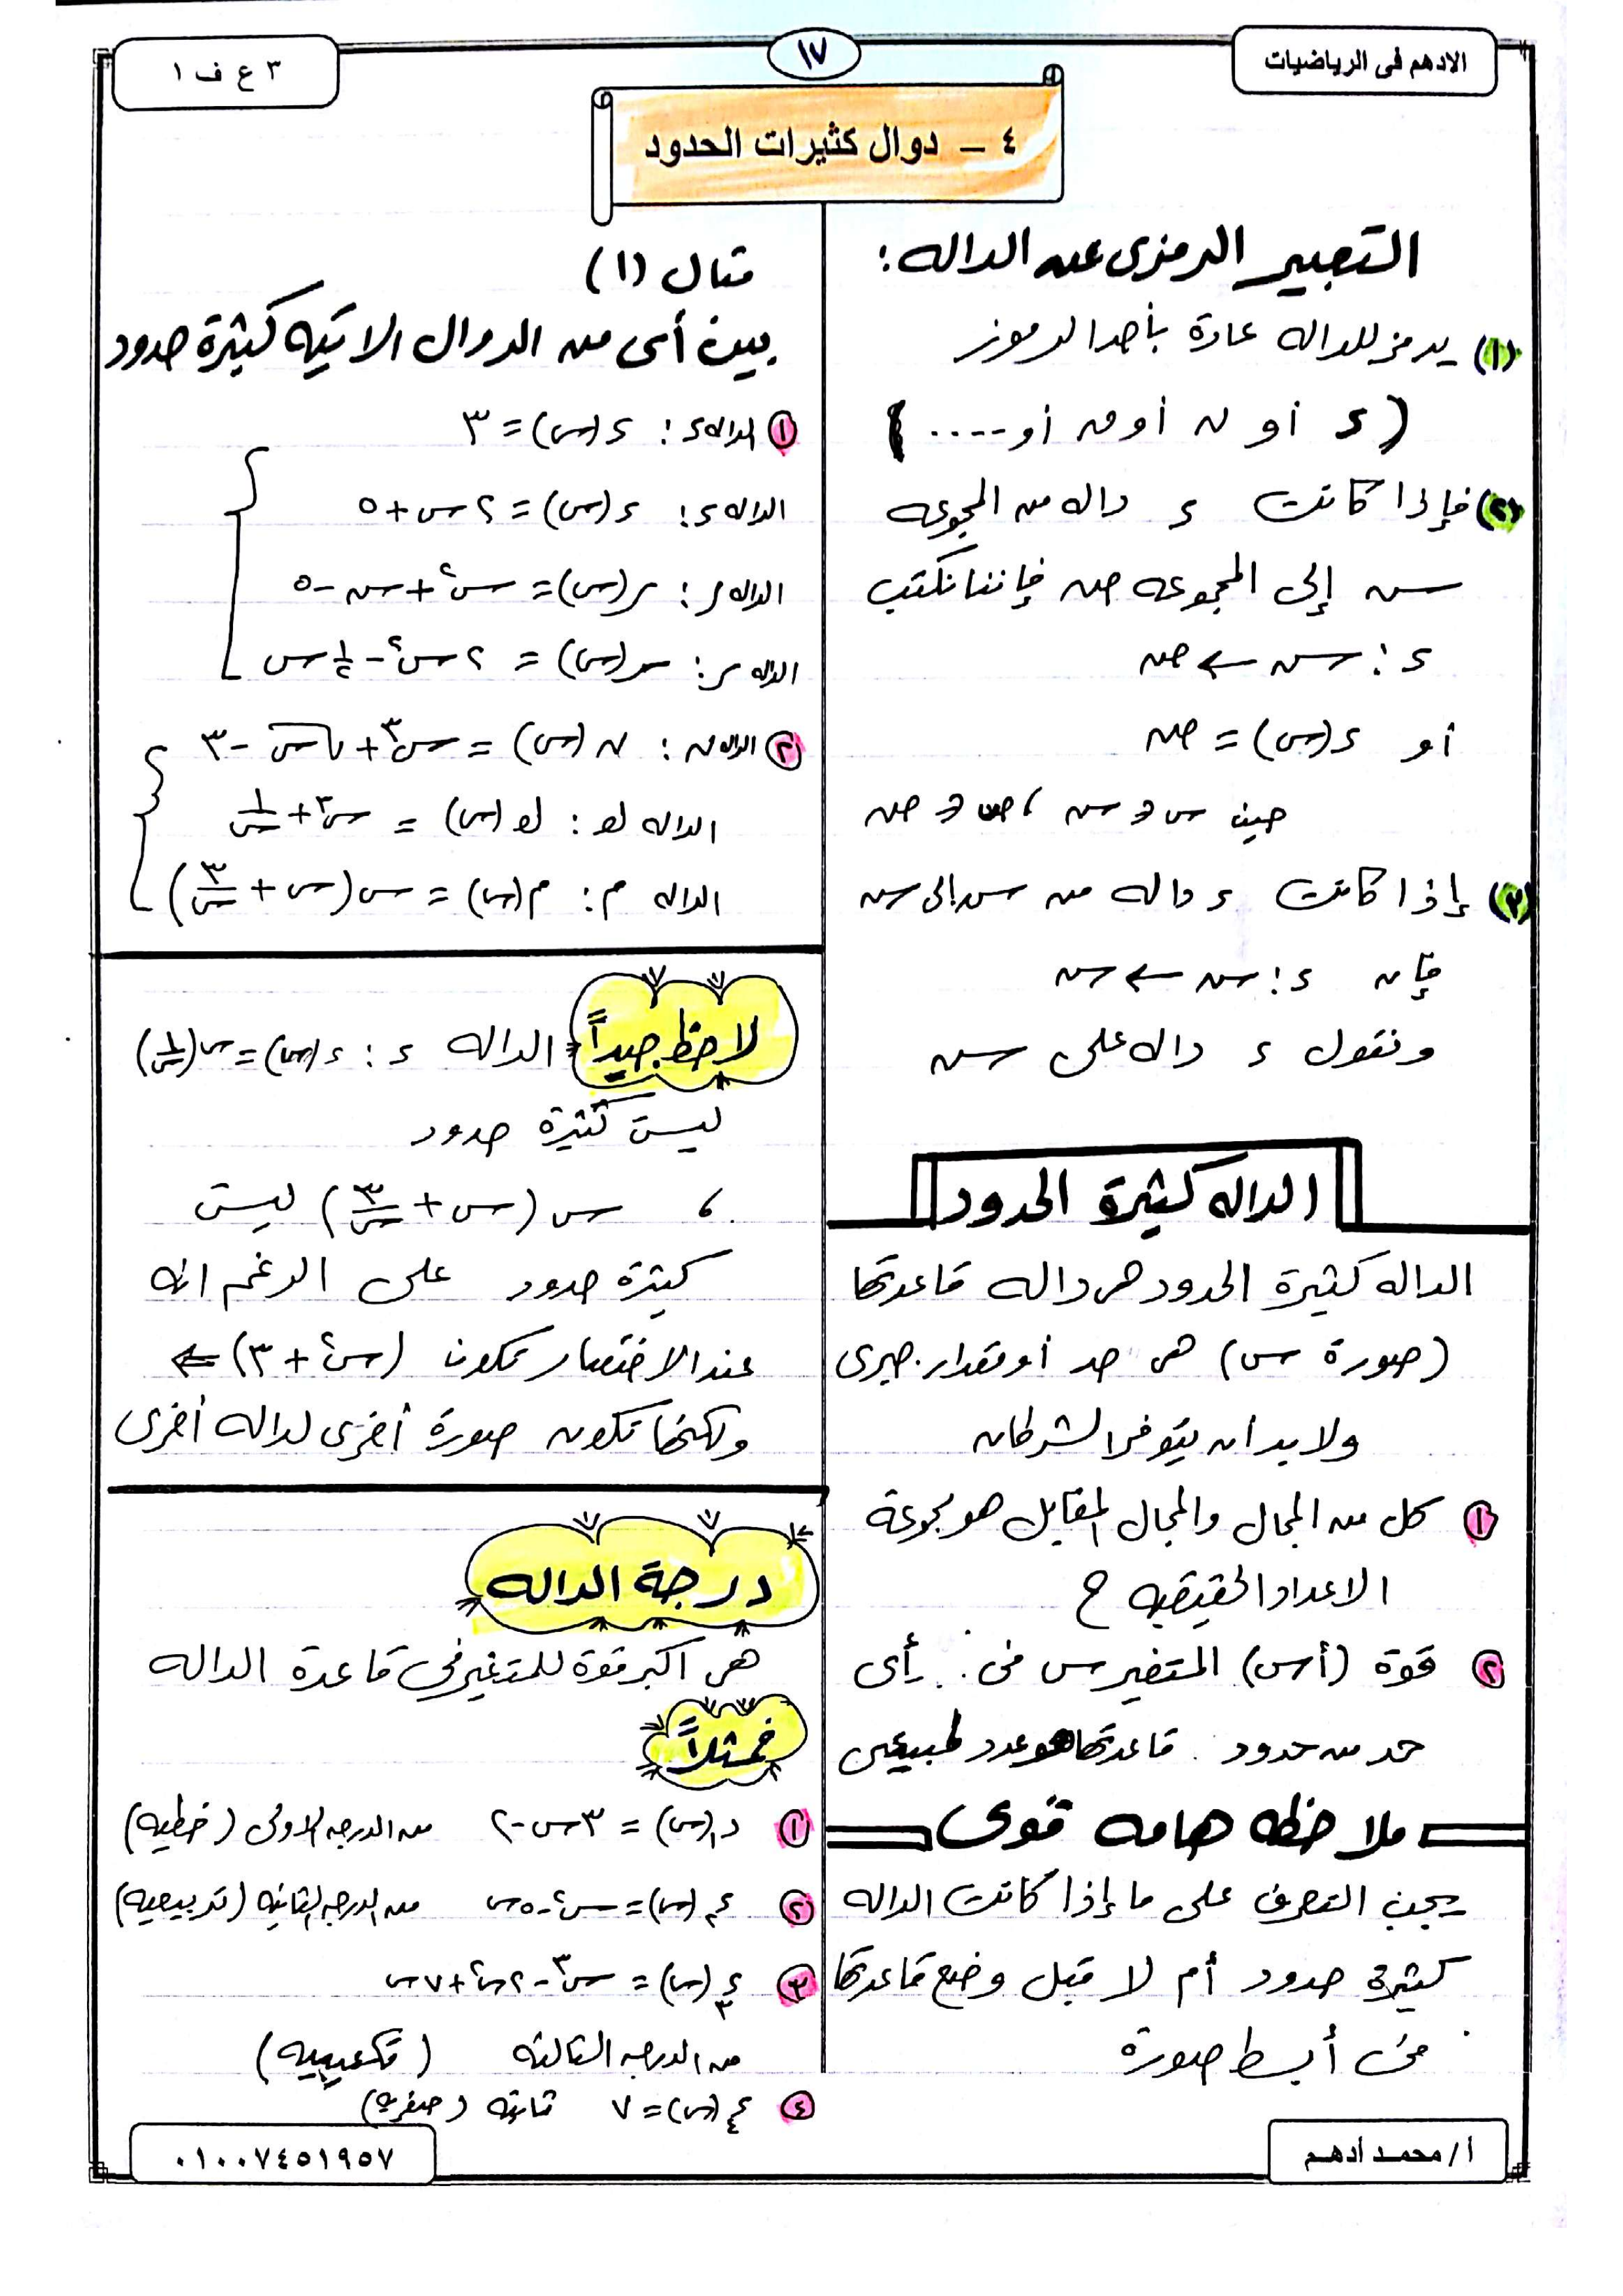 الادهم فى الرياضيات
١٧
٣ ع ف ١
٤ – دوال كثيرات الحدود
التعبير الرمزى عن الداله :
(١) يرمز للداله عادة بأحد الرموز
( د أو ن أو ق أو .... )
(٢) فإذا كانت د داله من المجموعه
س إلى المجموعه ص فإننا نكتب
د : س ← ص
أو د (س) = ص
حيث س ∈ س ، ص ∈ ص
(٣) إذا كانت د داله من س إلى س
فإن د : س ← س
ونقول د داله على س
الداله كثيرة الحدود
الداله كثيرة الحدود هى داله قاعدتها
(صورة س) هى حد أو مقدار جبرى
ولا بد ان يتوفر الشرطان
١ كل من المجال والمجال المقابل هو مجموعة
الاعداد الحقيقيه ح
٢ قوة (أس) المتغير س فى أى
حد من حدود قاعدتها هو عدد طبيعى
ملاحظه هامه قوى
يجب التعرف على ما إذا كانت الداله
كثيرة حدود أم لا قبل وضع قاعدتها
فى أبسط صورة
مثال (١)
بين أى من الدوال الاتيه كثيرة حدود
١ الداله د : د (س) = ٣
الداله د : د (س) = ٢ س + ٥
الداله ر : ر (س) = س٢ + س - ٥
الداله ر : ر (س) = ٢ س٢ - ١/٢ س
٢ الداله ن : ن (س) = س٣ + √س - ٣
الداله لو : لو (س) = س٣ + ١/س
الداله م : م (س) = س (س + ٣/س)
لاحظ جيداً الداله د : د (س) = س (١/س)
ليست كثيرة حدود
، س (س + ٣/س) ليست
كثيرة حدود على الرغم انه
عند الاختصار تكون (س٢ + ٣) ⇐
ولكنها تكون صورة أخرى لداله أخرى
درجة الداله
هى اكبر قوة للمتغير فى قاعدة الداله
فمثلاً
١ د١ (س) = ٣ س - ٢ من الدرجه الاولى (خطيه)
٢ د٢ (س) = س٢ - ٥ س من الدرجه الثانيه (تربيعيه)
٣ د٣ (س) = س٣ - ٢ س٢ + ٧ س
من الدرجه الثالثه (تكعيبيه)
٤ د٤ (س) = ٧ ثابته (صفريه)
أ / محمد أدهم
٠١٠٠٧٤٥١٩٥٧